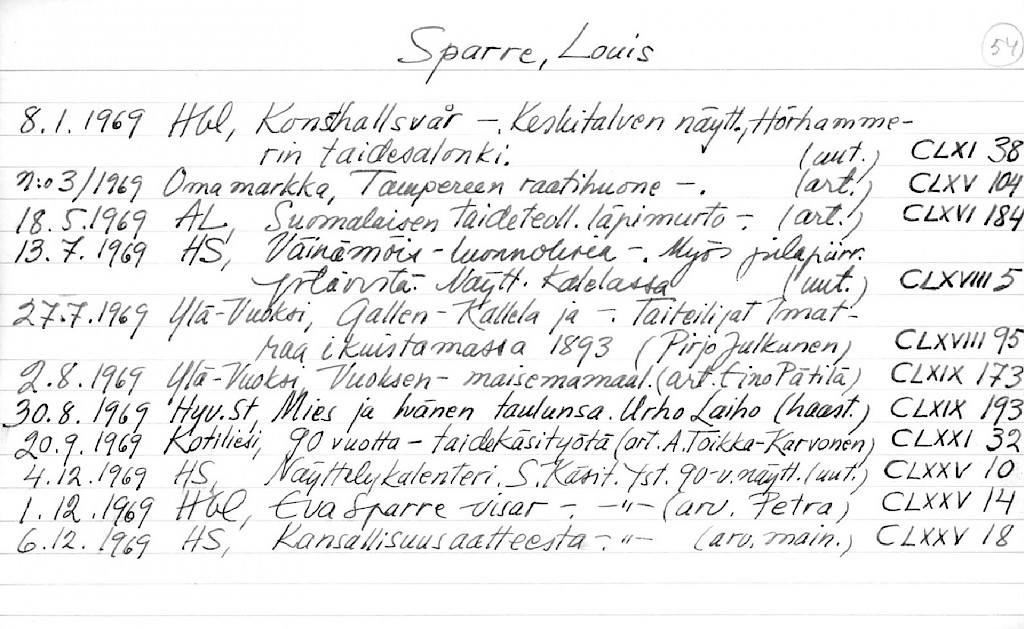 Sparre, Louis
54
8.1.1969 Hbl, Konsthallsvår -. Keskitalven näytt., Hörhamme-
rin taidesalonki. (uut.) CLXI 38
n:o 3/1969 Oma markka, Tampereen raatihuone -. (art.) CLXV 104
18.5.1969 AL, Suomalaisen taideteoll. läpimurto -. (art.) CLXVI 184
13.7.1969 HS, Väinämöis-luonnoksia -. Myös pilapiirr.
ystävistä. Näytt. Kalelassa (uut.) CLXVIII 5
27.7.1969 Ylä-Vuoksi, Gallen-Kallela ja -. Taiteilijat Imat-
raa ikuistamassa 1893 (Pirjo Julkunen) CLXVIII 95
2.8.1969 Ylä-Vuoksi, Vuoksen- maisemamaal. (art. Eino Pätilä) CLXIX 173
30.8.1969 Hyv.St, Mies ja hänen taulunsa. Urho Laiho (haast.) CLXIX 193
20.9.1969 Kotiliesi, 90 vuotta - taidekäsityötä (art. A. Toikka-Karvonen) CLXXI 32
4.12.1969 HS, Näyttelykalenteri. S. Käsit. Yst. 90-v. näytt. (uut.) CLXXV 10
1.12.1969 Hbl, Eva Sparre visar -. -"- (arv. Petra) CLXXV 14
6.12.1969 HS, Kansallisuusaatteesta -. -"- (arv. main.) CLXXV 18